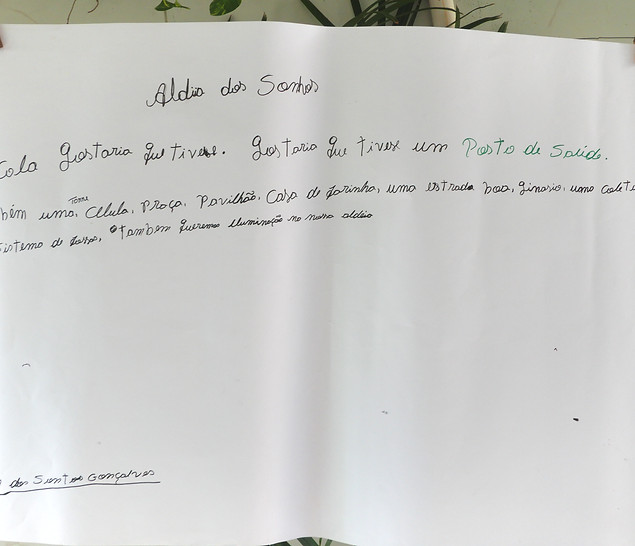 Aldia dos Sonhos
cola gostaria que tivese. Gostaria que tivese um Posto de Saúde.
bém uma, Torre Célula, Praça, Pavilhão, Casa de farinha, uma estrada boa, ginasio, uma colet
sistema de fossa, também queremos iluminação no nossa aldéia
dos Santos Gonçalves